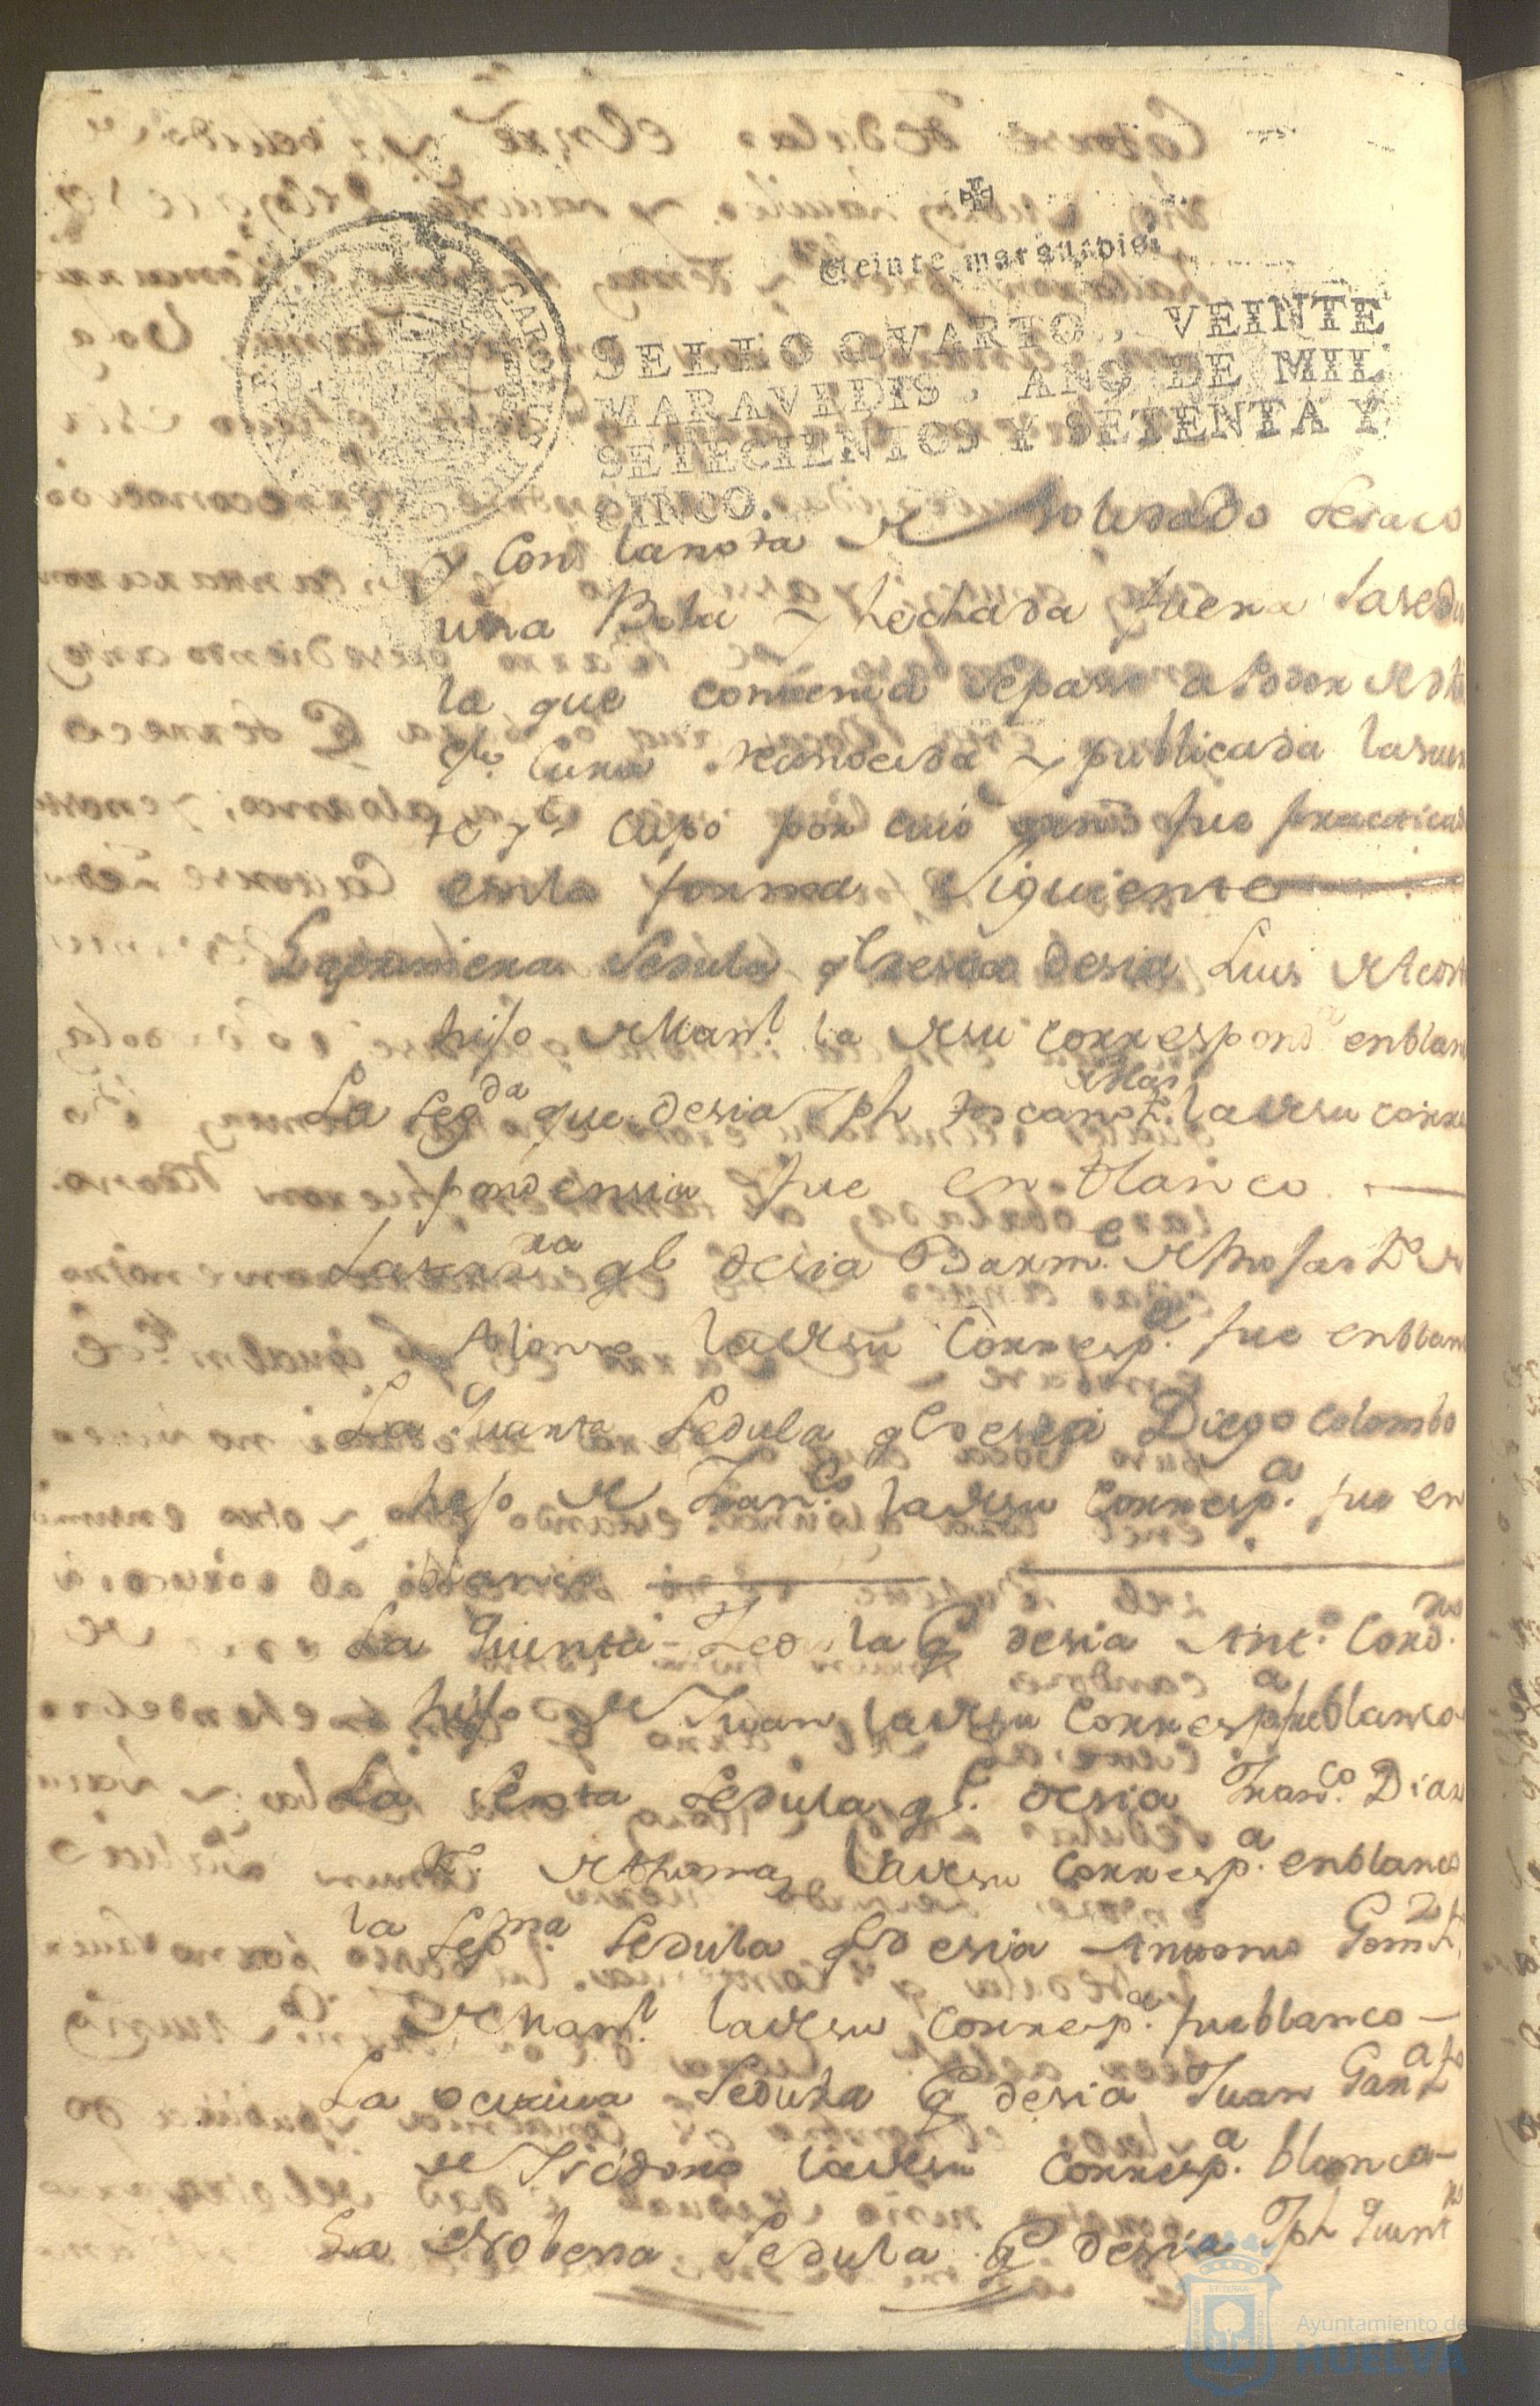 Veinte maravedis.
SELLO QVARTO, VEINTE
MARAVEDIS, AÑO DE MIL
SETECIENTOS Y SETENTA Y
CINCO.
y Con la nota de Soldado se saco
una Bola y hechada fuera la sedu
la que contenia
Cura reconocida y publicada la suer
te y cupo por cuio fue practicad
en la forma Siguiente
La primera Sedula ql desia Luis de Acost
hijo de Manl. la de su correspond.a en blan
La seg.da que desia Jph toscano la de su corres
pondensia fue en blanco
ql desia Barme. de Rojas
Alonso la de su Corresp.a fue en blan
La Quarta Sedula ql desia Diego Colombo
hijo de Fran.co la de su Corresp.a fue en
blanco
La Quinta Sedula q desia Ant.o Cord.ro
hijo de Juan, la de su Corresp.a fue blanco
La Sexta Sedula ql. desia Fran.co Dias
de Thomas la de su corresp.a en blanco
la Sepma. Sedula ql desia Antonio Gomz.
de Manl. la de su corresp.a fue blanco
La octava Sedula q desia Juan Garza
de Isidoro la de su Corresp.a blanca
La Nobena Sedula q desia Jph Quint.ro
Ayuntamiento de
HUELVA